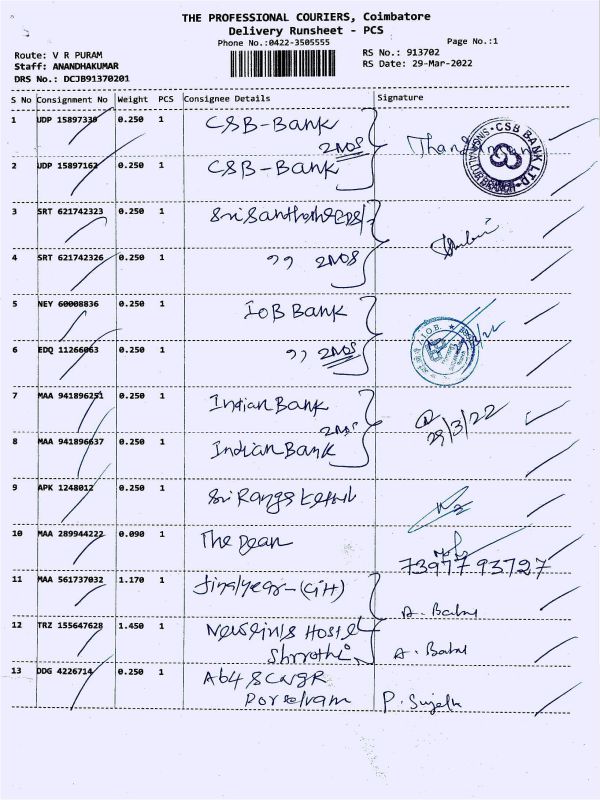 THE PROFESSIONAL COURIERS, Coimbatore
Delivery Runsheet - PCS
Phone No.:0422-3505555
Page No.:1
Route: V R PURAM
RS No.: 913702
Staff: ANANDHAKUMAR
RS Date: 29-Mar-2022
DRS No.: DCJB91370201
S No Consignment No Weight PCS Consignee Details Signature
1 UDP 15897339 0.250 1 CSB-Bank
2NOS
CSB BANK LTD.
2 UDP 15897162 0.250 1 CSB-Bank
3 SRT 621742323 0.250 1
4 SRT 621742326 0.250 1 ,, 2NOS
5 NEY 60008836 0.250 1 IOB Bank
I.O.B.
6 EDQ 11266063 0.250 1 ,, 2NOS
7 MAA 941896251 0.250 1 Indian Bank
2NOS
29/3/22
8 MAA 941896637 0.250 1 Indian Bank
9 APK 1248012 0.250 1 Sri Ranga
10 MAA 289944222 0.090 1 The Dean
73977 93727
11 MAA 561737032 1.170 1
A. Babu
12 TRZ 155647628 1.450 1 Hostel
A. Babu
13 DDG 4226714 0.250 1
P.